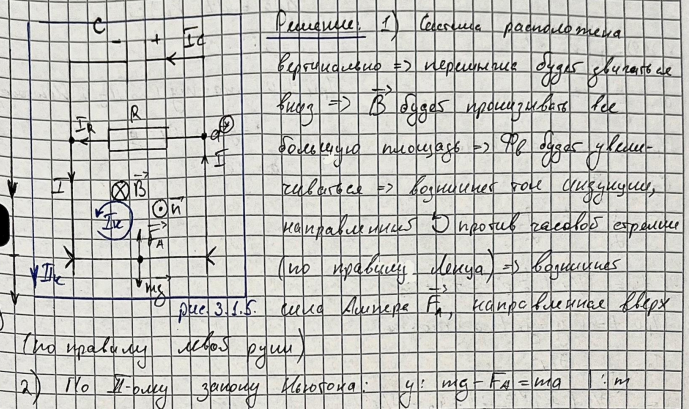 C
- +
Ic
Решение: 1) Система расположена
вертикально => перемычка будет двигаться
вниз => B⃗ будет пронизывать все
IR
R
a
I
I
большую площадь => Фв будет увели-
чиваться => возникнет ток индукции,
⊗ B⃗
⊙ n⃗
Iк
F⃗A
направленный ↺ против часовой стрелки
(по правилу Ленца) => возникнет
mg⃗
рис. 3.1.5.
сила Ампера F⃗A, направленная вверх
(по правилу левой руки)
2) По II-ому закону Ньютона: y: mg - FA = ma | : m